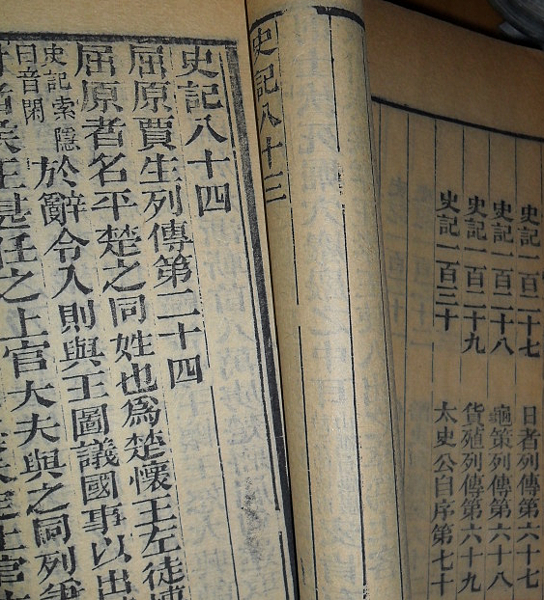 史記一百二十七　日者列傳第六十七
史記一百二十八　龜策列傳第六十八
史記一百二十九　貨殖列傳第六十九
史記一百三十　太史公自序第七十
史記八十三
史記八十四
屈原賈生列傳第二十四
屈原者名平楚之同姓也爲楚懷王左徒
史記索隱
曰音閑
於辭令入則與王圖議國事以出
王甚任之上官大夫與之同列